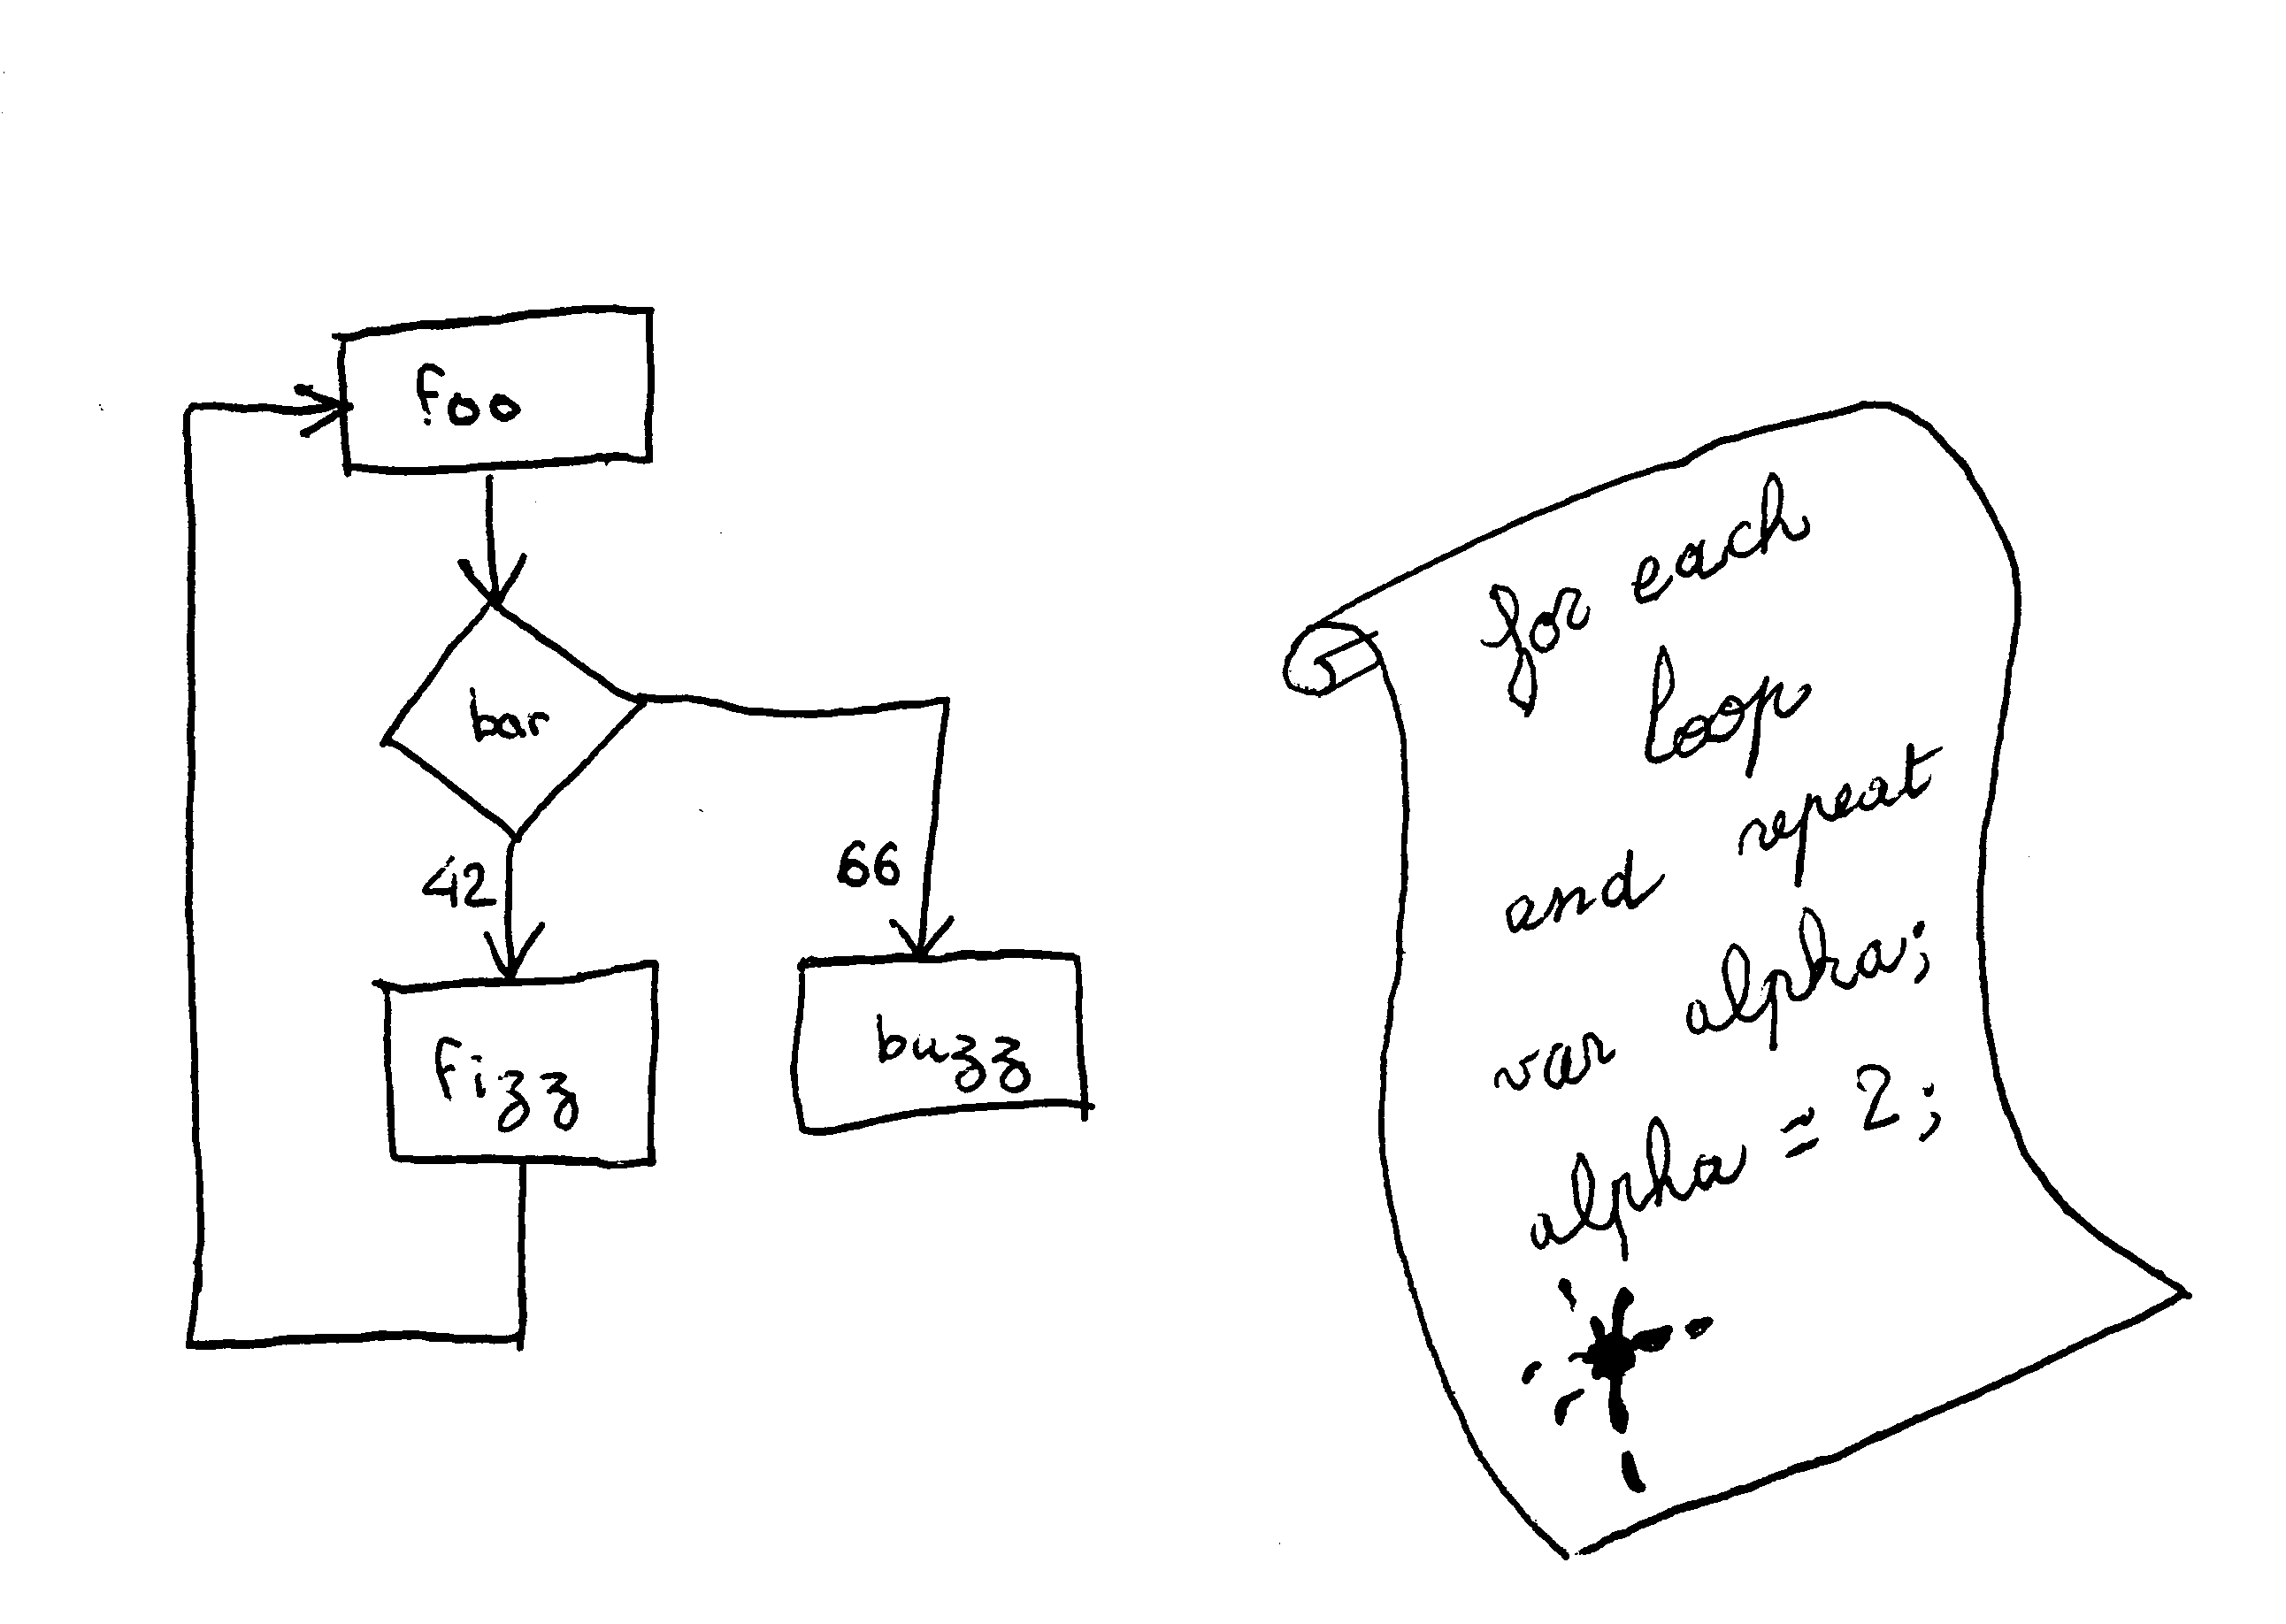 foo
bar
42
66
fizz
buzz
for each
loop
and repeat
var alpha;
alpha = 2;